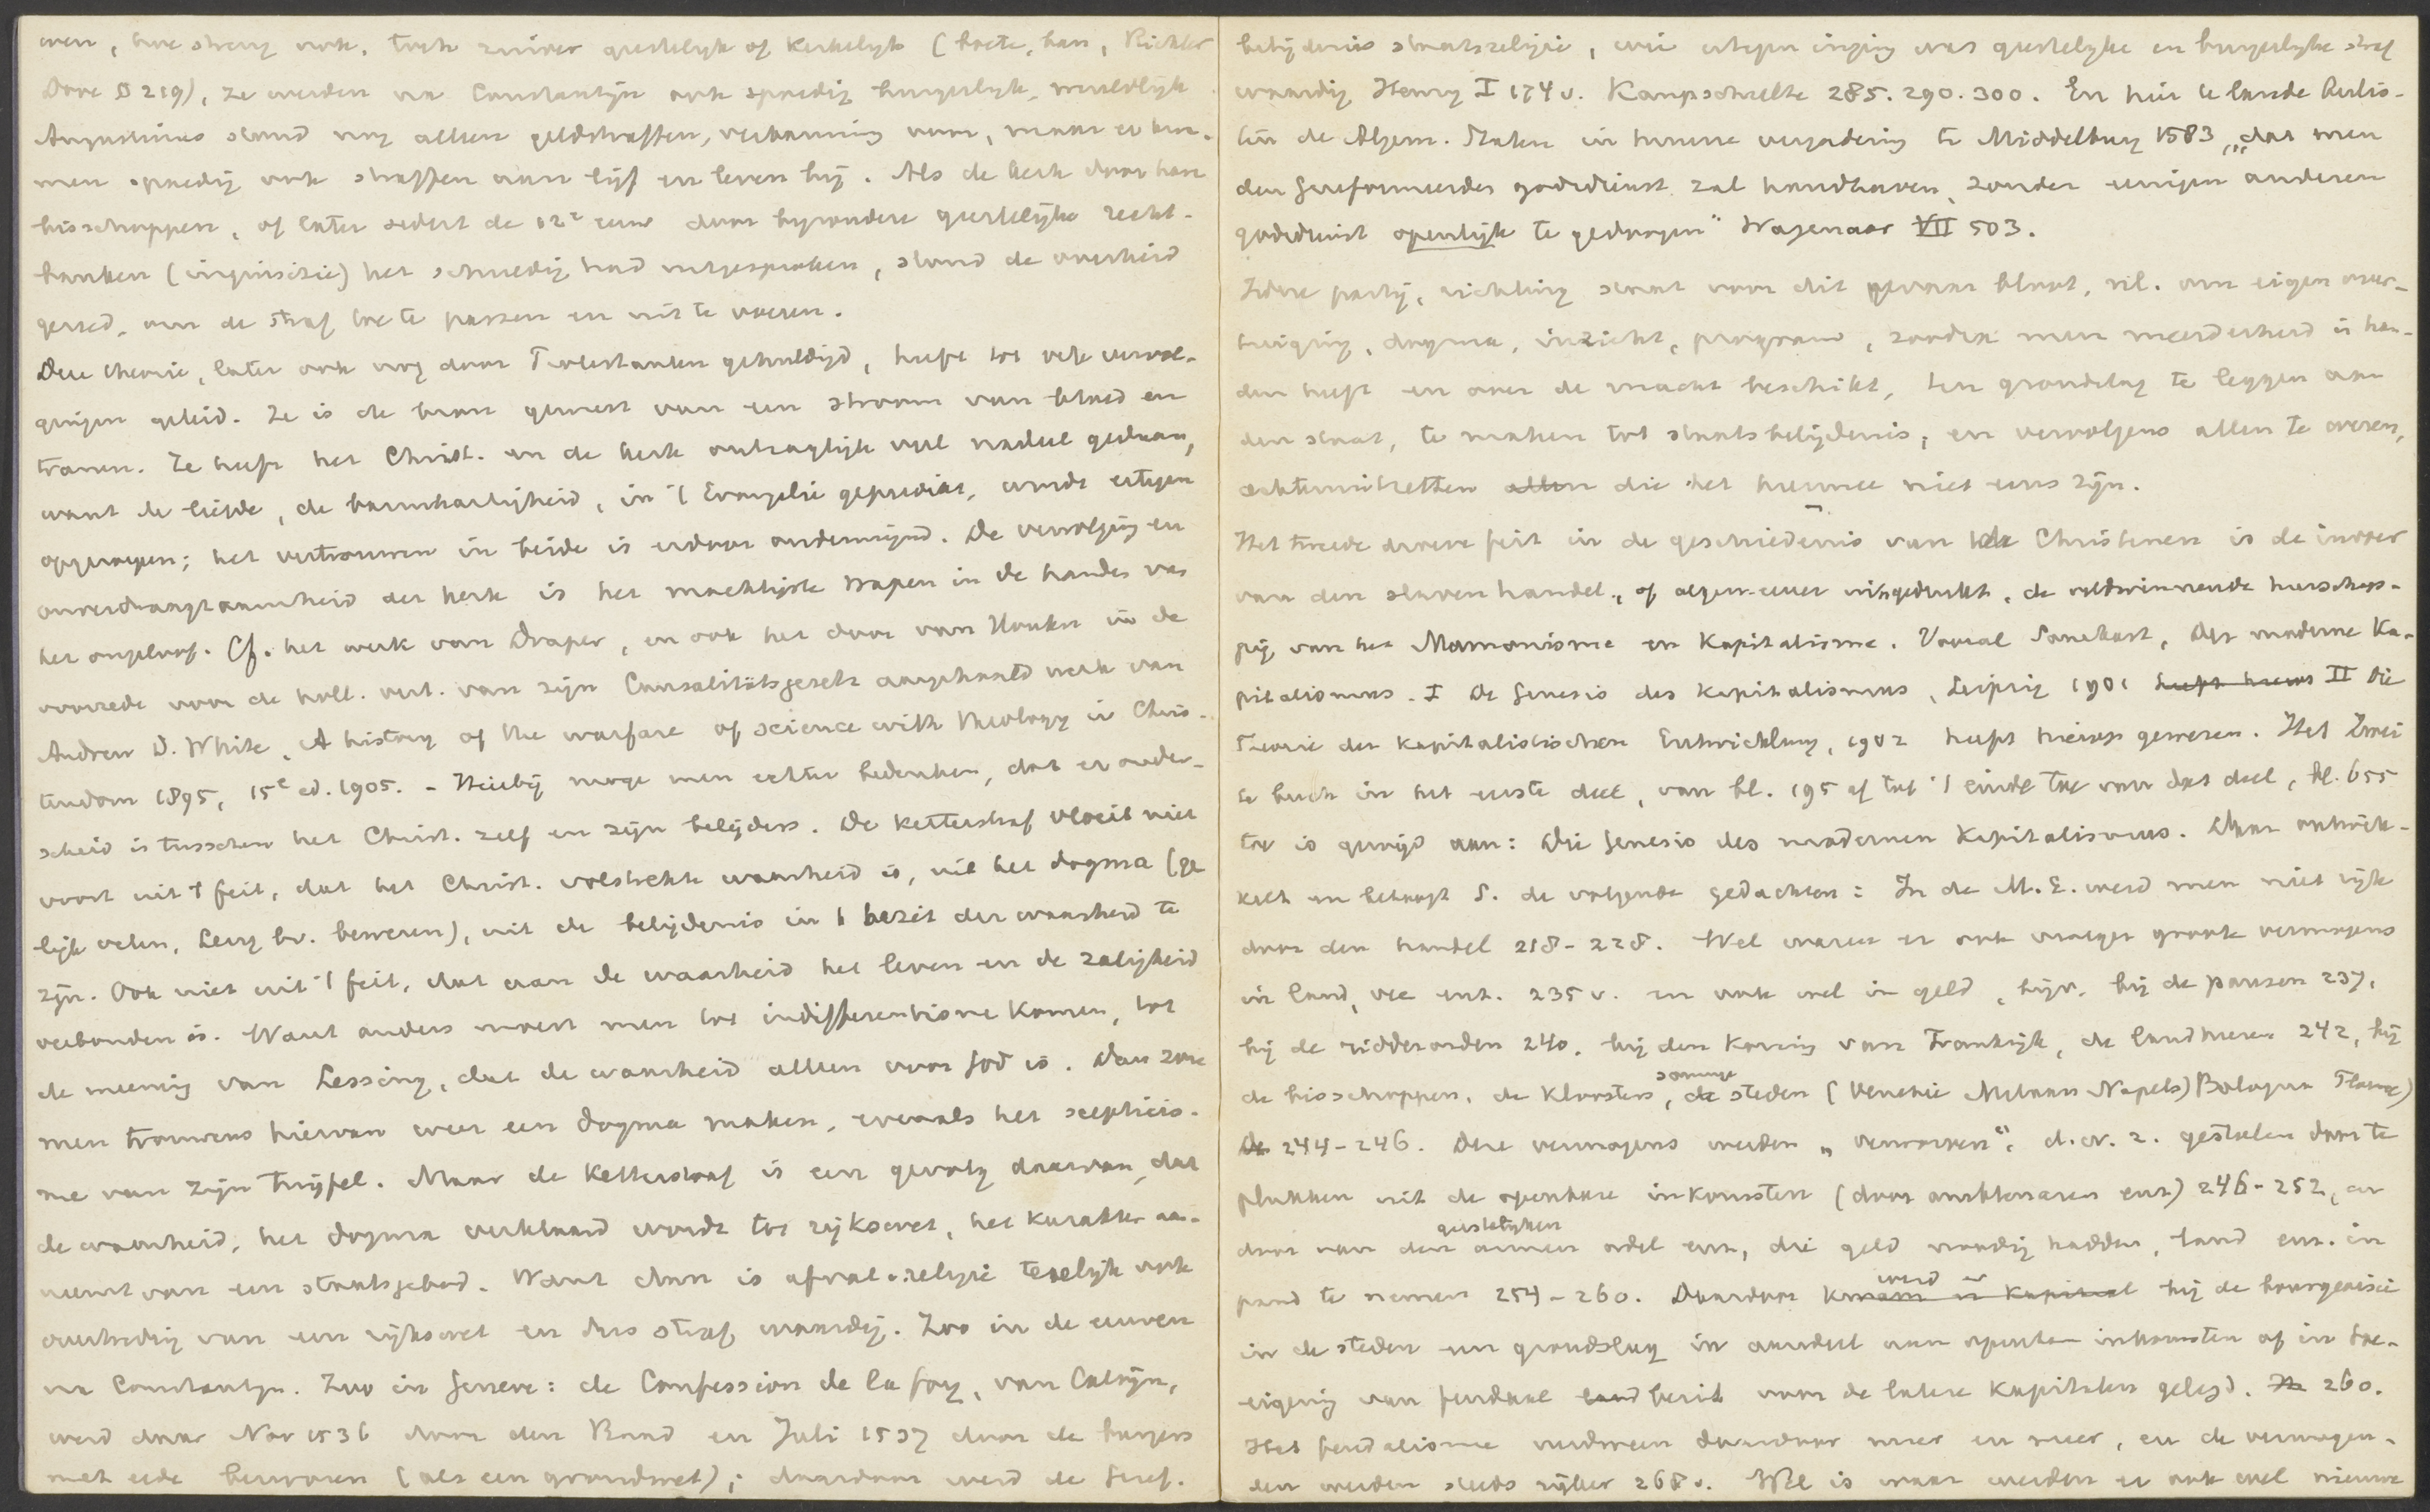 ven, hoe streng ook, toch zuiver geestelijk of kerkelijk (boete, ban, Richter
Dove § 219), ze werden na Constantijn ook spoedig burgerlijk, wereldlijk
Augustinus stond nog alleen geldstraffen, verbanning voor, maar er kwa-
men spoedig ook straffen aan lijf en leven bij. Als de kerk door hare
bisschoppen, of later sedert de 12e eeuw door byzondere geestelijke recht-
banken (inquisizie) het schuldig had uitgesproken, stond de overheid
gereed, om de straf toe te passen en uit te voeren.
Deze theorie, later ook nog door Protestanten gehuldigd, heeft tot vele vervol-
gingen geleid. Ze is de bron geweest van een stroom van bloed en
tranen. Ze heeft het Christ. en de kerk ontzaglijk veel nadeel gedaan,
want de liefde, de barmhartigheid, in 't Evangelie gepredikt, wordt ertegen
opgeroepen; het vertrouwen in beide is erdoor ondermijnd. De vervolging en
onverdraagzaamheid der kerk is het machtigste wapen in de handen van
het ongeloof. Cf. het werk van Draper, en ook het door van Houten in de
voorrede voor de holl. vert. van zijn Causalitätsgesetz aangehaald werk van
Andrew D. White, A history of the warfare of science with theology in Chris-
tendom 1895, 15e ed. 1905. - Hierbij moge men echter bedenken, dat er onder-
scheid is tusschen het Christ. zelf en zijn belijders. De ketterstraf vloeit niet
voort uit 't feit, dat het Christ. volstrekte waarheid is, uit het dogma (ge
lijk velen, Levy bv. beweren), uit de belijdenis in 't bezit der waarheid te
zijn. Ook niet uit 't feit, dat aan de waarheid het leven en de zaligheid
verbonden is. Want anders moest men tot indifferentisme komen, tot
de meening van Lessing, dat de waarheid alleen voor God is. Dan zou
men trouwens hiervan weer een dogma maken, evenals het scepticis-
me van zijn twijfel. Maar de ketterstraf is een gevolg daarvan, dat
de waarheid, het dogma verklaard wordt tot rijkswet, het karakter aan-
neemt van een staatsgebod. Want dan is afval, kelyrie tevelijk ook
overtreding van een rijkswet en dus strafwaardig. Zoo in de eeuwen
na Constantijn. Zoo in Geneve: de Confession de la foy, van Calvijn,
werd daar Nov 1536 door den Raad en Juli 1537 door de burgers
met eede bezworen (als een grondwet); daardoor werd de Geref.
belijdenis staatsreligie, wie ertegen inging was geestelijke en burgerlijke straf
waardig Henry I 174 v. Kampschulte 285. 290. 300. En hier te lande beslo-
ten de Algem. Staten in hunne vergadering te Middelburg 1583 „dat men
den Gereformeerden godsdienst zal handhaven, zonder eenigen anderen
godsdienst openlijk te gedoogen" Wagenaar VII 503.
Iedere partij, richting staat voor dit gevaar bloot, nl. om eigen over-
tuiging, dogma, inzicht, program, zoodra men meerderheid in han-
den heeft en over de macht beschikt, ten grondslag te leggen aan
den staat, te maken tot staatsbelijdenis, en vervolgens allen te
achteruitzetten allen die het hiermee niet eens zijn.
Het tweede droeve feit in de geschiedenis van de Christenen is de invoer
van den slavenhandel, of algemeener uitgedrukt, de veldwinnende heerschap-
pij van het Mammonisme en Kapitalisme. Vooral Sombart, Der moderne Ka-
pitalismus. I Die Genesis des Kapitalismus, Leipzig 1901 heeft hierop II Die
Theorie der kapitalistischen Entwicklung, 1902 heeft hierop gewezen. Het Zwei
te buch in het eerste deel, van bl. 195 af tot 't einde toe van dat deel, bl. 655
toe is gewijd aan: Die Genesis des modernen Kapitalismus. Daar ontwik-
kelt en betoogt S. de volgende gedachten: In de M.E. werd men niet rijk
door den handel 218-228. Wel waren er ook vroeger groote vermogens
in land, vee enz. 235 v. en ook wel in geld, bijv. bij de pausen 237,
bij de ridderorden 240, bij den koning van Frankrijk, de landheeren 242, bij
de bisschoppen, de kloosters, sommige de steden (Venetie Milaan Napels) Bologna Florence)
De 244-246. Deze vermogens werden „verworven", d.w.z. gestolen door te
plukken uit de openbare inkomsten (door ambtenaren enz) 246-252, en
door van den geestelijken armen adel enz, die geld noodig hadden, land enz. in
pand te nemen 254-260. Daardoor kwam er kapitaal werd er bij de bourgeoisie
in de steden een grondslag in aandeel aan openbare inkomsten of in toe-
eigening van feudaal land bezit voor de latere kapitalen gelegd. 260.
Het feudalisme verdween daardoor meer en meer, en de vermogen-
den werden steeds rijker 268 v. Wel is waar werden er ook veel nieuwe